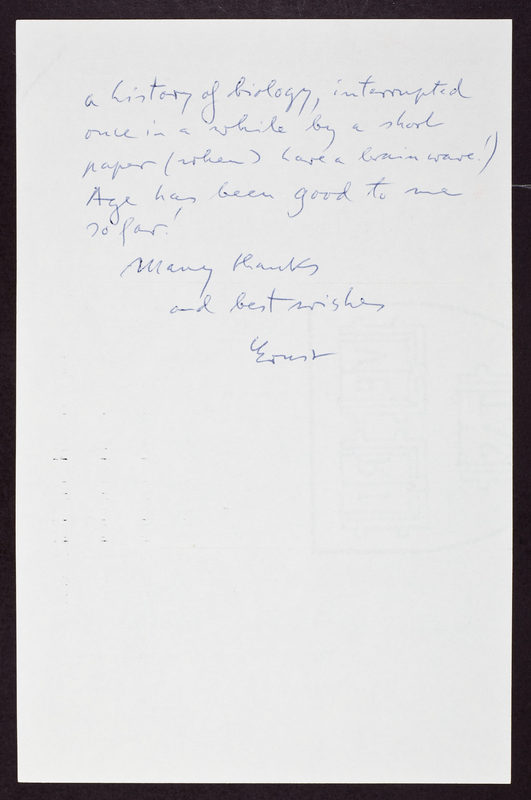 a history of biology, interrupted
once in a while by a short
paper (when I have a brain wave!)
Age has been good to me
so far!
Many thanks
and best wishes
Ernst